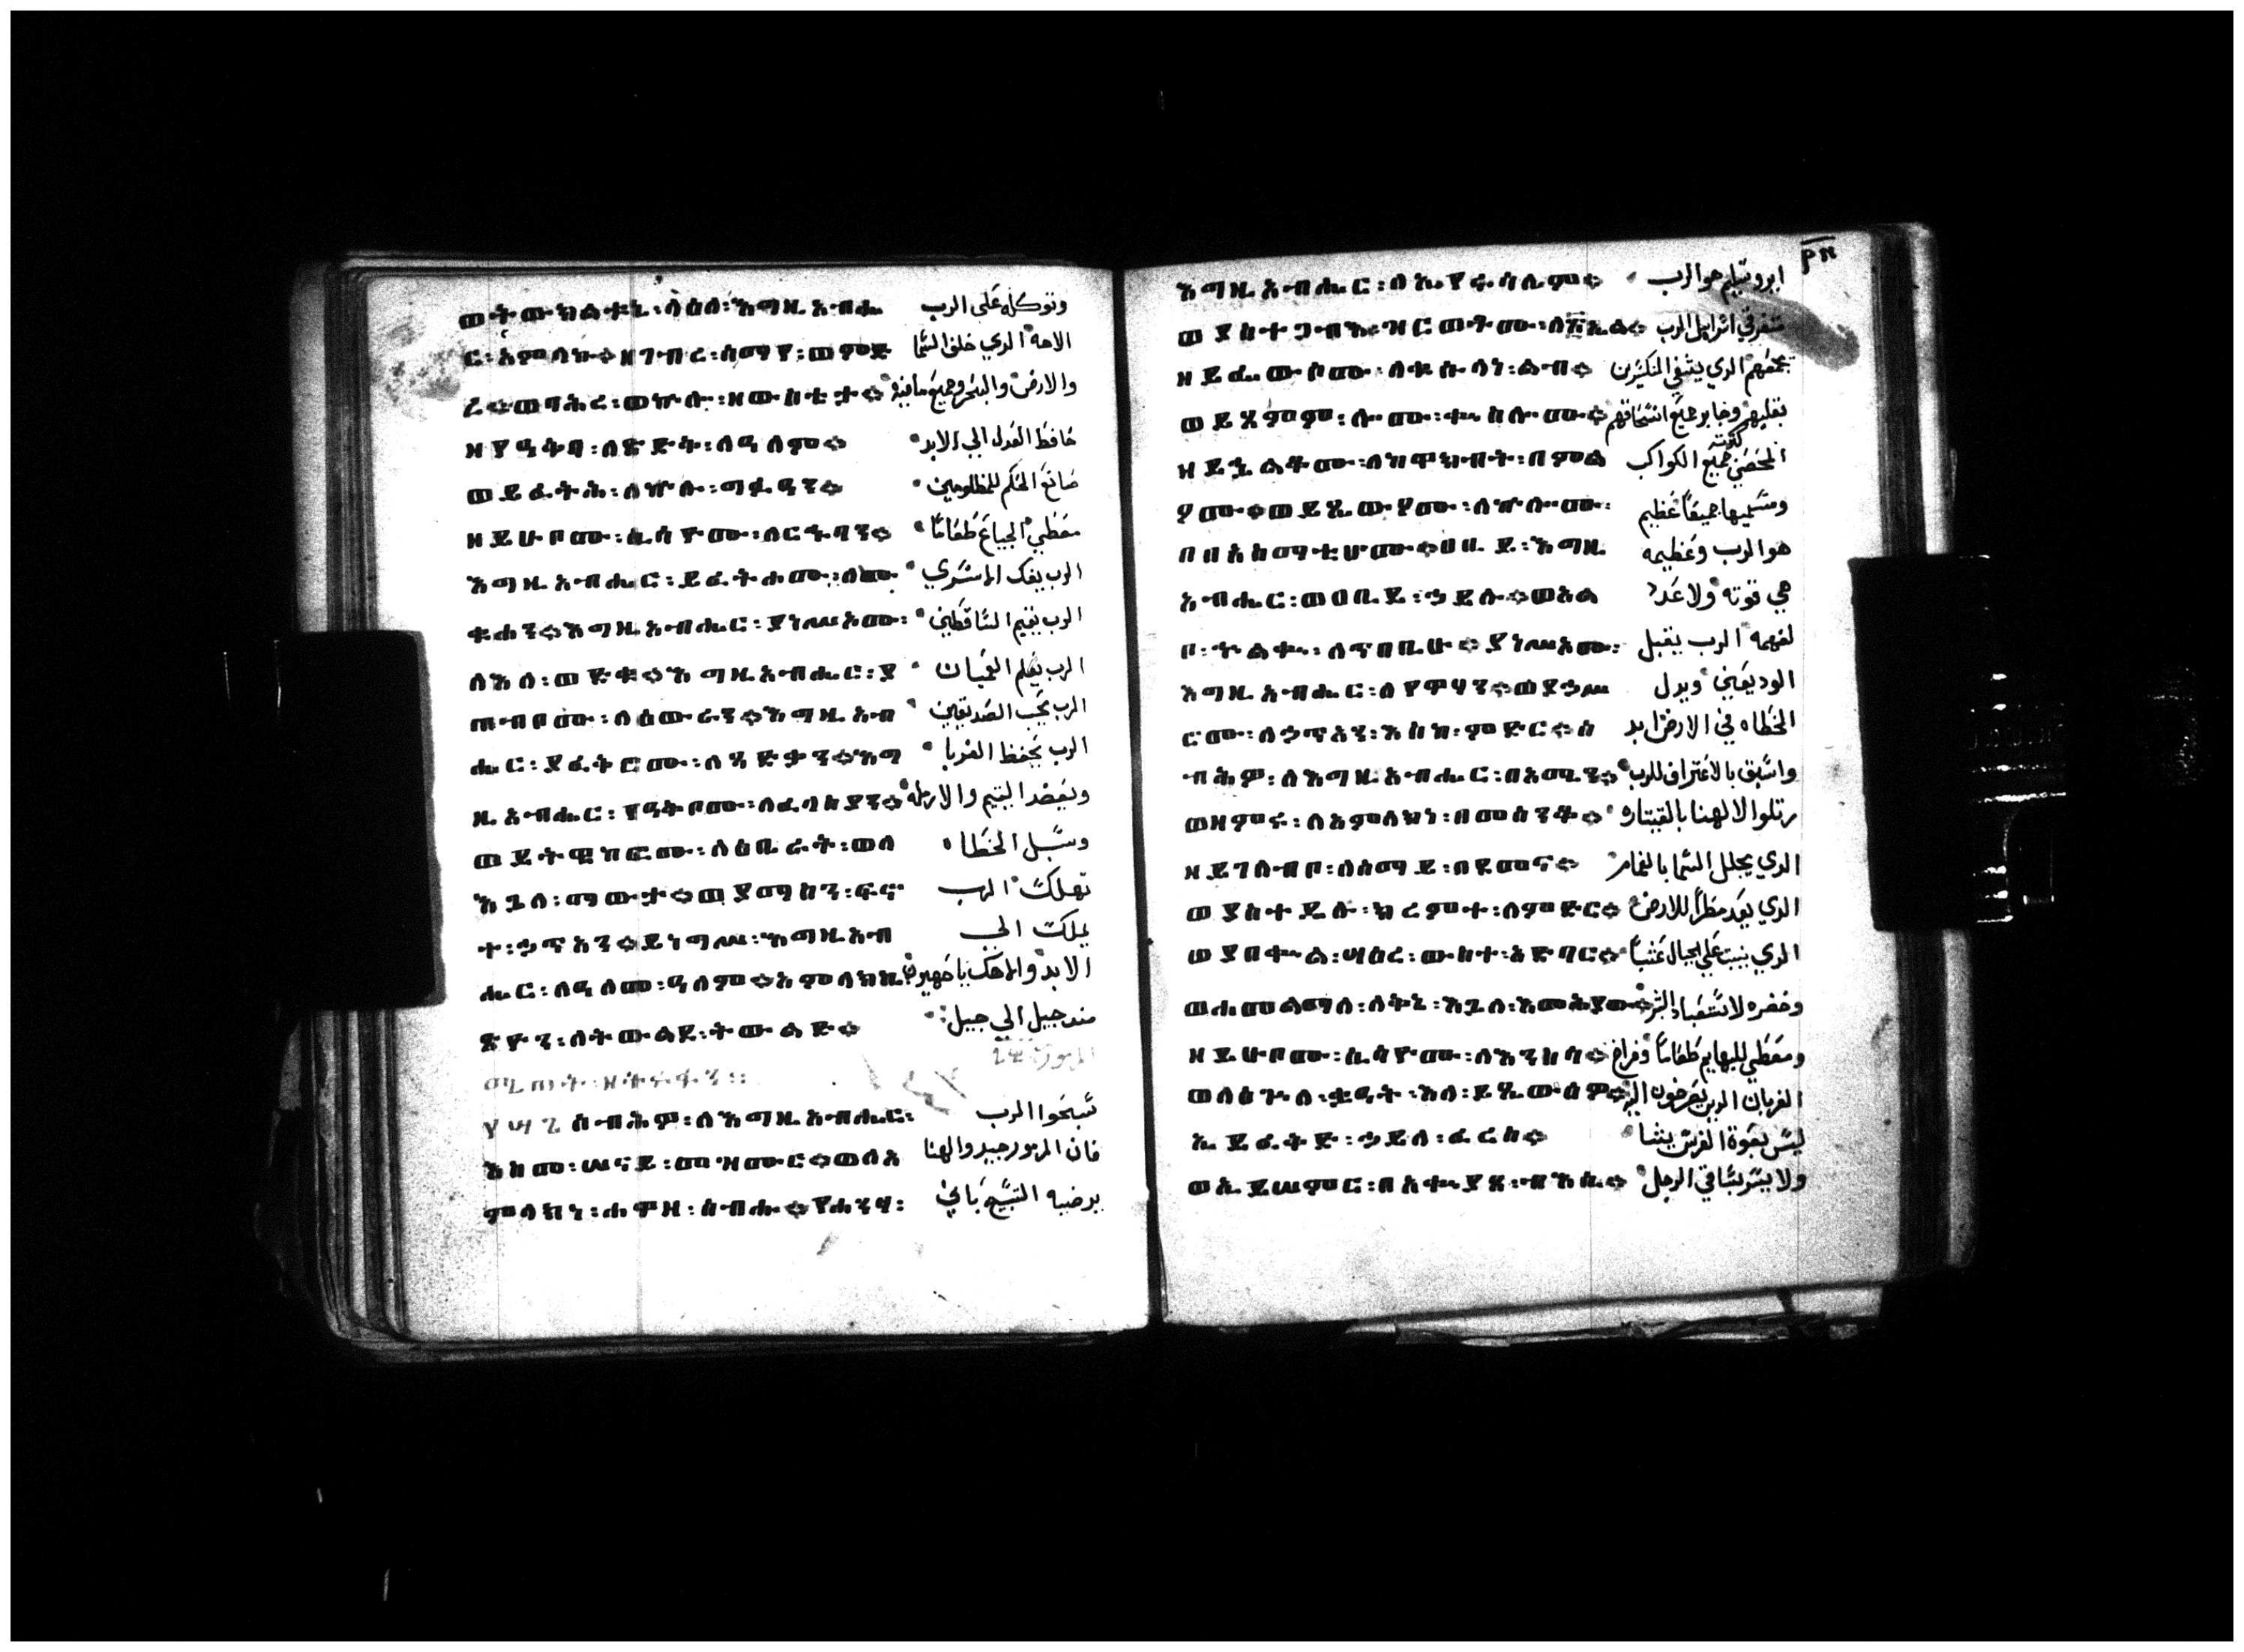 ወትውክልቱኒ፡ላዕለ፡እግዚአብሔ وتوكله على الرب
ር፡አምላኩ።ዘገብረ፡ሰማየ፡ወምድ الاهه الدي خلق السما
ረ።ወባሕረ፡ወኵሎ፡ዘውስቴታ። والارض والبحر وجميع مافيه
ዘየዓቅብ፡ለጽድቅ፡ለዓለም። حافظ العدل الي الابد
ወይፈትሕ፡ለኵሉ፡ግፉዓን። صانع الحكم للمظلومين
ዘይሁቦሙ፡ሲሳዮሙ፡ለርኁባን። معطي الجياع طعاما
እግዚአብሔር፡ይፈትሖሙ፡ለሙ الرب يفك الماسوري
ቁሐን።እግዚአብሔር፡ያነሥኦሙ፡ الرب يقيم الساقطين
ለእለ፡ወድቁ።እግዚአብሔር፡ያ الرب يعلم العميان
ጠብቦሙ፡ለዕውራን።እግዚአብ الرب يحب الصديقين
ሔር፡ያፈቅሮሙ፡ለጻድቃን።እግ الرب يحفظ الغربا
ዚአብሔር፡የዓቅቦሙ፡ለፈላስያን። ويعضد اليتيم والارمله
ወይትዌከፎሙ፡ለዕቤራት፡ወለ وسبل الخطاه
እጓለ፡ማውታ።ወያማስን፡ፍኖ تهلك الرب
ተ፡ኃጥአን።ይነግሥ፡እግዚአብ يملك الي
ሔር፡ለዓለመ፡ዓለም።አምላክኪ الابد والاهك ياصهيون
ጽዮን፡ለትውልደ፡ትውልድ። مند جيل الي جيل
ሰብሕዎ፡ለእግዚአብሔር፡ سبحوا الرب
እስመ፡ሠናይ፡መዝሙር።ወለአ فان المزمور جيد والهنا
ምላክነ፡ሐዋዝ፡ሰብሖ።የሐንጻ፡ يرضيه التسبيح باني
እግዚአብሔር፡ለኢየሩሳሌም። ايروشليم هو الرب
ወያስተጋብእ፡ዝርወቶሙ፡ለ፳ኤል። متفرقي اسراييل الرب
ዘይፌውሶሙ፡ለቁሱላነ፡ልብ። يجمعهم الدي يشفي المنكسرين
ወይጸምም፡ሎሙ፡ቍስሎሙ። بقلبهم وجابر جميع انسحاقهم
ዘይኌልቆሙ፡ለከዋክብት፡በምል المحصي كثرة جميع الكواكب
ዖሙ።ወይጼውዖሙ፡ለኵሎሙ፡ ومسميها جميعًا عظيم
በበአስማቲሆሙ።ዐቢይ፡እግዚ هو الرب وعظيمه
አብሔር፡ወዐቢይ፡ኃይሉ።ወአል هي قوته ولا عدد
ቦ፡ኍልቍ፡ለጥበቢሁ።ያነሥኦሙ፡ لفهمه الرب يقبل
እግዚአብሔር፡ለየዋሃን።ወያኃሥ الوديعين ويدل
ሮሙ፡ለኃጥአን፡እስከ፡ምድር።ስ الخطاه في الارض ابد
ብሕዎ፡ለእግዚአብሔር፡በአሚን። واسبق بالاعتراف للرب
ወዘምሩ፡ለአምላክነ፡በመሰንቆ። رتلوا لالهنا بالقيتاره
ዘይገለብቦ፡ለሰማይ፡በደመና። الدي يجلل السما بالغمام
ወያስተዴሉ፡ክረምተ፡ለምድር። الدي يعد مطراً للارض
ወያበቍል፡ሣዕረ፡ውስተ፡አድባር። الدي ينبت علي الجبال عشباً
ወሐመልማለ፡ለቅኔ፡እጓለ፡እመሕያው። وخضره لاستعباد البشر
ዘይሁቦሙ፡ሲሳዮሙ፡ለእንስሳ። ومعطي للبهايم طعاماً وفراخ
ወለዕጕለ፡ቋዓት፡እለ፡ይጼውዕዎ። الغربان الدين يصرخون اليه
ኢይፈቅድ፡ኃይለ፡ፈረስ። ليس بقوة الفرس يشا
ወኢይሠምር፡በአቍያጸ፡ብእሲ። ولا يسر بساقي الرجل